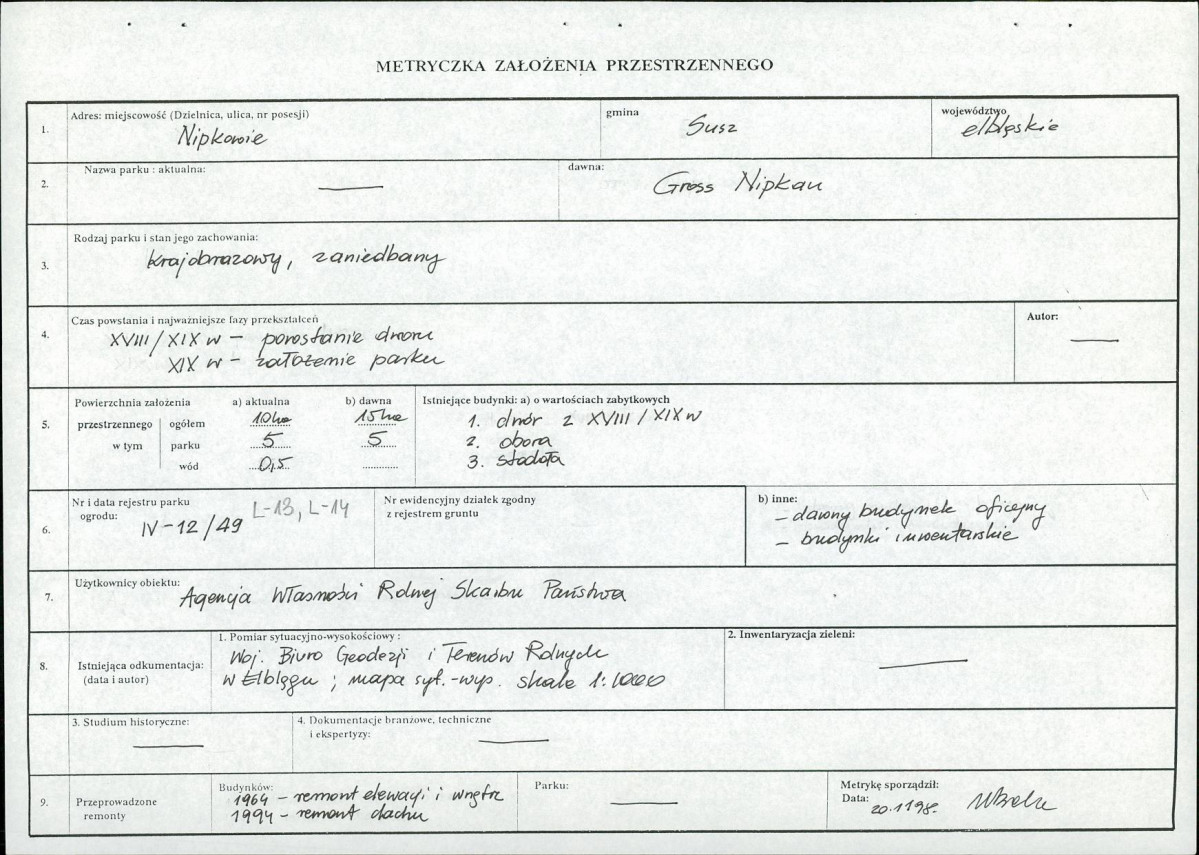 METRYCZKA ZAŁOŻENIA PRZESTRZENNEGO
1. Adres: miejscowość (Dzielnica, ulica, nr posesji)
Nipkowie
gmina
Susz
województwo
elbląskie
2. Nazwa parku : aktualna:
dawna:
Gross Nipkau
3. Rodzaj parku i stan jego zachowania:
krajobrazowy, zaniedbany
4. Czas powstania i najważniejsze fazy przekształceń
XVIII/XIX w – powstanie dworu
XIX w – założenie parku
Autor:
5. Powierzchnia założenia a) aktualna b) dawna
przestrzennego ogółem 10 ha 15 ha
w tym parku 5 5
wód 0,5
Istniejące budynki: a) o wartościach zabytkowych
1. dwór z XVIII/XIX w
2. obora
3. stodoła
6. Nr i data rejestru parku
ogrodu:
IV-12/49 L-13, L-14
Nr ewidencyjny działek zgodny
z rejestrem gruntu
b) inne:
– dawny budynek oficejny
– budynki inwentarskie
7. Użytkownicy obiektu:
Agencja Własności Rolnej Skarbu Państwa
8. Istniejąca odkumentacja:
(data i autor)
1. Pomiar sytuacyjno-wysokościowy :
Woj. Biuro Geodezji i Terenów Rolnych
w Elblągu ; mapa syt.-wys. skala 1:1000
2. Inwentaryzacja zieleni:
3. Studium historyczne:
4. Dokumentacje branżowe, techniczne
i ekspertyzy:
9. Przeprowadzone
remonty
Budynków:
1964 – remont elewacji i wnętrz
1994 – remont dachu
Parku:
Metrykę sporządził:
Data: 20.11.98.